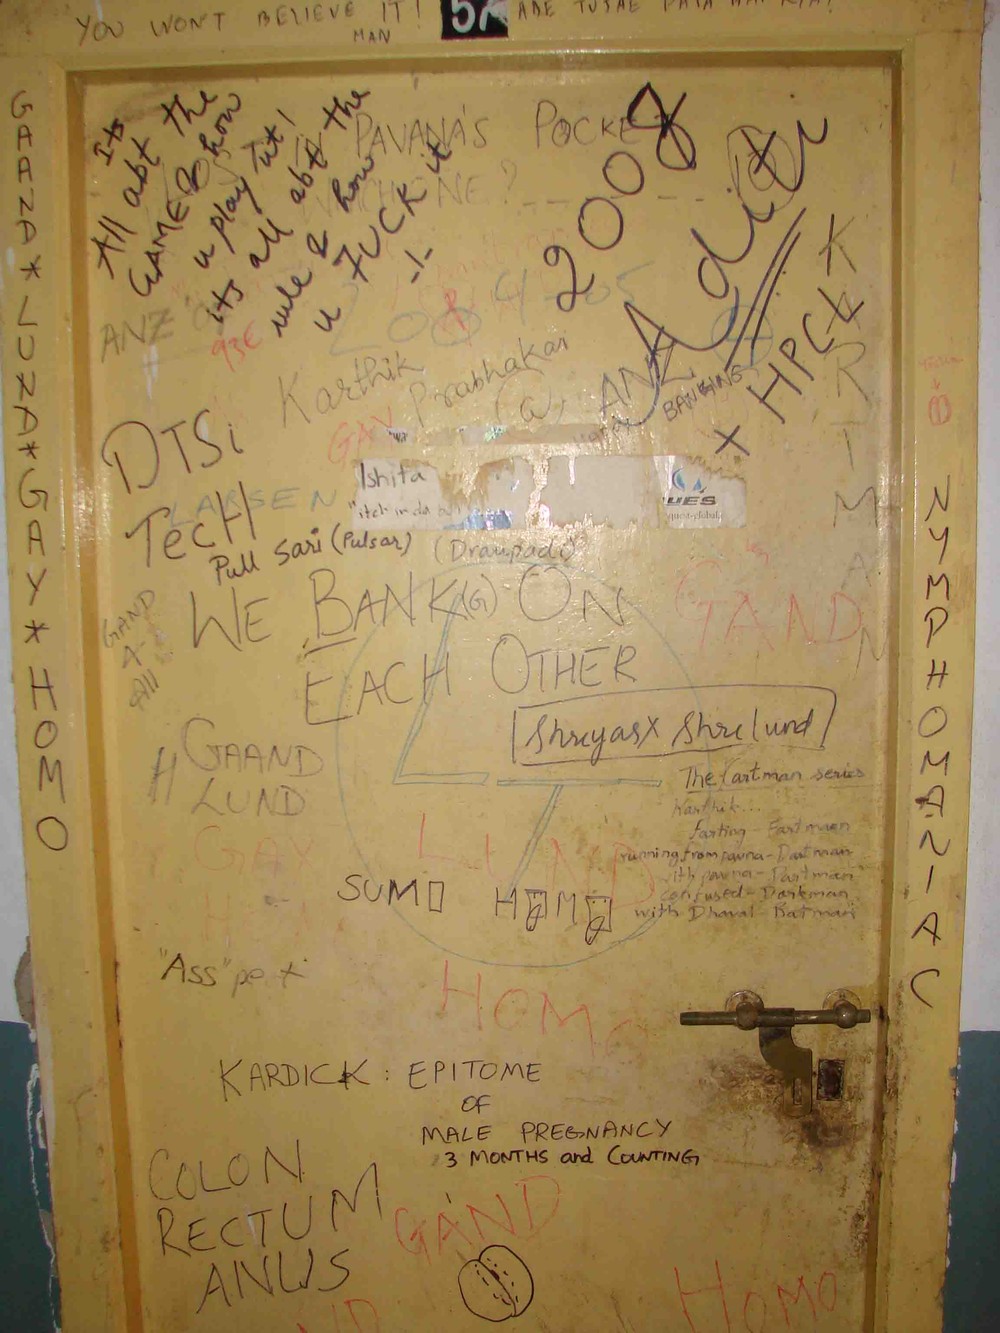 YOU WON'T BELIEVE IT!
MAN
5A
ABE TUJHE PATA HAI KYA!
GAAND * LUND * GAY * HOMO
Its
All abt the
GAME & how
u play it!
its all abt the
rule & how
u FUCK it
-1-
PAVANA'S POCKE
2008
Aditi
HPCL
X
ANZ
93E
2004-05
Karthik Prabhakar
@ ANZ
BANKING
GAY
DTSi
TecH
LARSEN
Ishita
UES
quest-global
Pull Sari (Pulsar) (Draupadi)
WE BANK(G) ON
EACH OTHER
GAND
4
All
GAND
KKRIMAN
NYMPHOMANIAC
Shreyas X Shrelund
H GAAND
LUND
GAY
LUND
The Cartman series
Karthik...
farting - Fartman
running from pavna - Dartman
with pavna - Dartman
confused - Darkman
with Dhaval - Batman
SUMO
HOMO
"Ass" pe x
HOMO
KARDICK : EPITOME
OF
MALE PREGNANCY
3 MONTHS and COUNTING
COLON
RECTUM
ANUS
GAND
HOMO